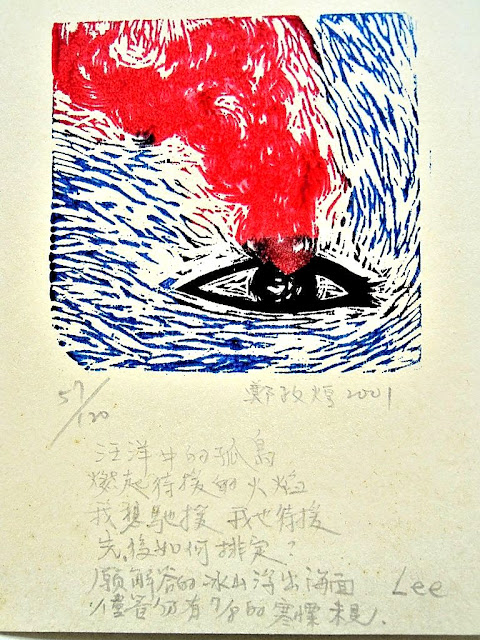 57/120
鄭政煌 2001
汪洋中的孤島
燃起待援的火焰
我想馳援 我也待援
先後如何排定?
願解答的冰山浮出海面 Lee
僅管仍有7分的寒慄未見.